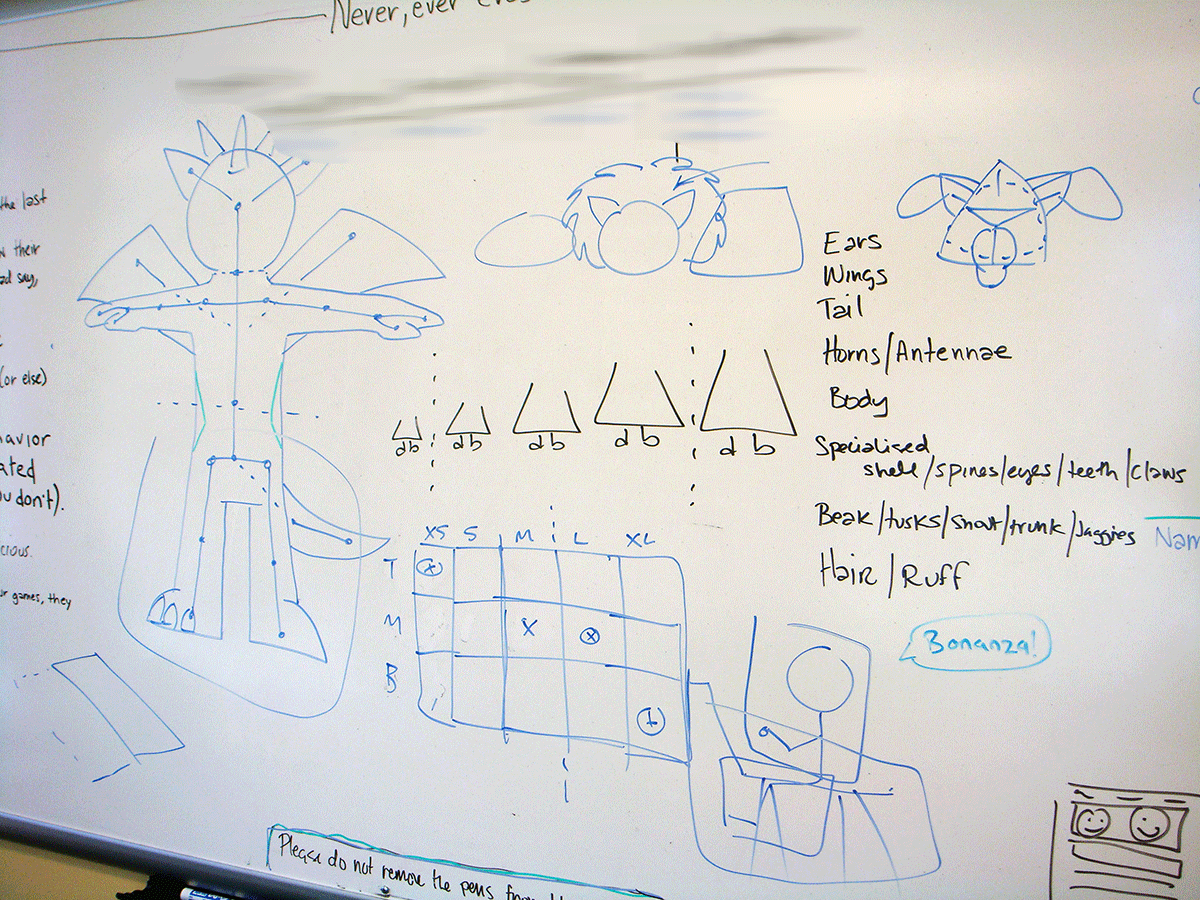 Never, ever
the last
their
say,
(or else)
avior
ated
u don't).
cious.
r games, they
Ears
Wings
Tail
Horns/Antennae
Body
Specialised
shell/spines/eyes/teeth/claws
Beak/tusks/snout/trunk/Jaggies
Hair/Ruff
Nam
Bonanza!
d b
d b
d b
d b
d b
XS S M L XL
T
M
B
Please do not remove the pens from